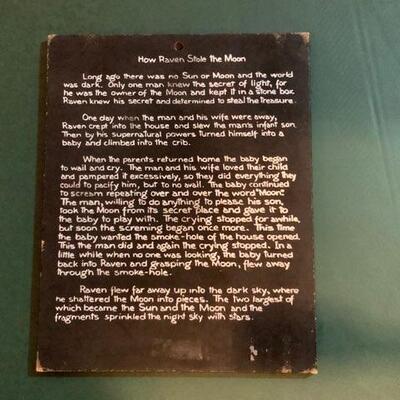 How Raven Stole the Moon
Long ago there was no Sun or Moon and the world
was dark. Only one man knew the secret of light, for
he was the owner of the Moon and kept it in a stone box.
Raven knew his secret and determined to steal the treasure.
One day when the man and his wife were away,
Raven crept into the house and slew the man's infant son.
Then by his supernatural powers turned himself into a
baby and climbed into the crib.
When the parents returned home the baby began
to wail and cry. The man and his wife loved their child
and pampered it excessively, so they did everything they
could to pacify him, but to no avail. The baby continued
to scream repeating over and over the word "Moon!"
The man, willing to do anything to please his son,
took the Moon from its secret place and gave it to
the baby to play with. The crying stopped for awhile,
but soon the screming began once more. This time
the baby wanted the smoke-hole of the house opened.
This the man did and again the crying stopped. In a
little while when no one was looking, the baby turned
back into Raven and grasping the Moon, flew away
through the smoke-hole.
Raven flew far away up into the dark sky, where
he shattered the Moon into pieces. The two largest of
which became the Sun and the Moon and the
fragments sprinkled the night sky with stars.